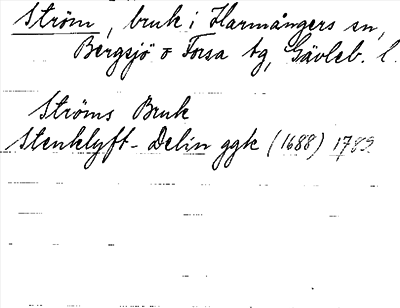 Ström, bruk i Harmångers sn,
Bergsjö o Forsa tg, Gävleb. l.
Ströms Bruk
Stenklyft - Delin ggk (1688) 1789